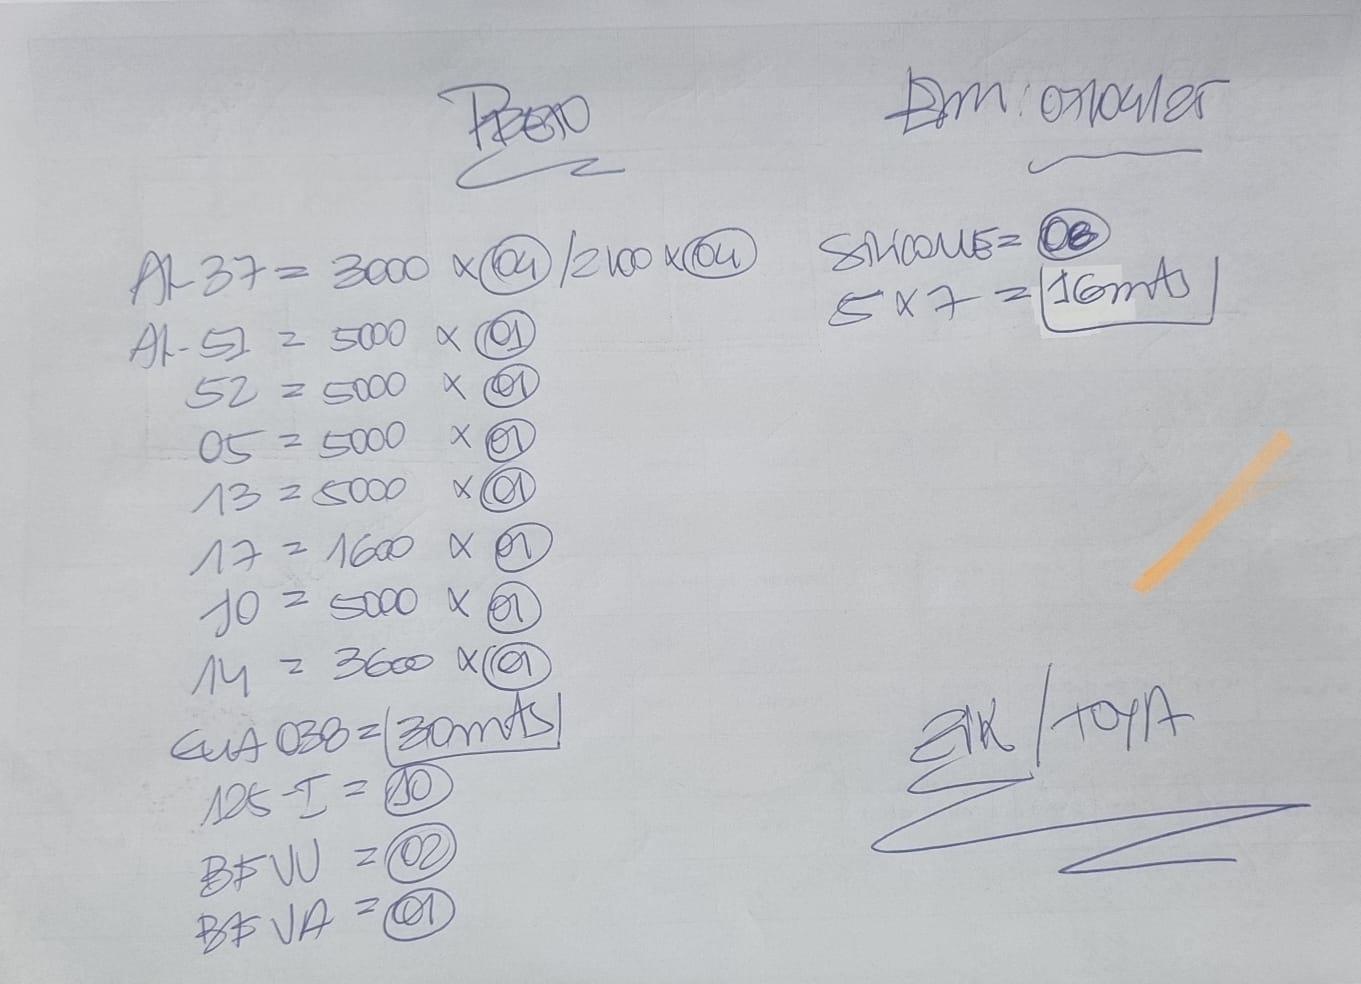 AL-37 = 3000 x 04 / 2100 x 04
AL-51 = 5000 x 01
52 = 5000 x 01
05 = 5000 x 01
13 = 5000 x 01
17 = 1600 x 01
10 = 5000 x 01
14 = 3600 x 01
038 = 30mts
125-I = 10
BF VU = 02
BF VA = 01
SILICONE = 08
5 x 7 = 16mts
/ TOYA